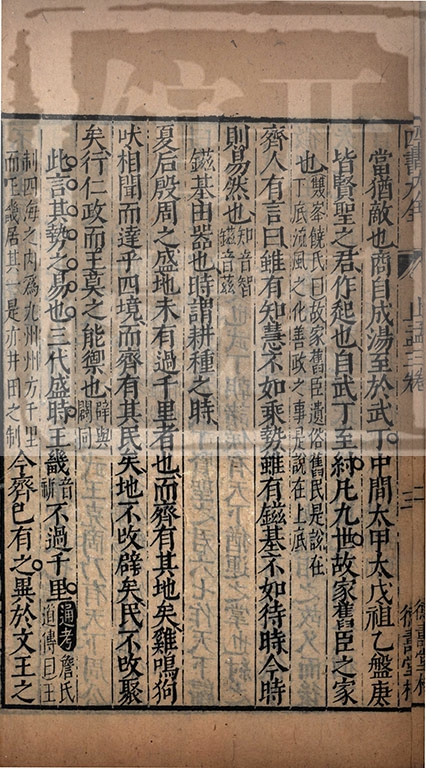 四書大全 上孟三卷
當猶敵也商自成湯至於武丁中間太甲太戊祖乙盤庚
皆賢聖之君作起也自武丁至紂凡九世故家舊臣之家
也
峯饒氏曰故家舊臣遺俗舊民是說在
下底流風之化善政之事是說在上底
齊人有言曰雖有知慧不如乘勢雖有鎡基不如待時今時
則易然也
知音智
鎡音玆
鎡基田器也時謂耕種之時
夏后殷周之盛地未有過千里者也而齊有其地矣雞鳴狗
吠相聞而達乎四境而齊有其民矣地不改辟矣民不改聚
矣行仁政而王莫之能禦也
辟與
闢同
此言其勢之易也三代盛時王畿
音
祈
不過千里
通考
詹氏
道傳曰王
制四海之內為九州州方千里
而王畿居其一是亦井田之制
今齊已有之異於文王之